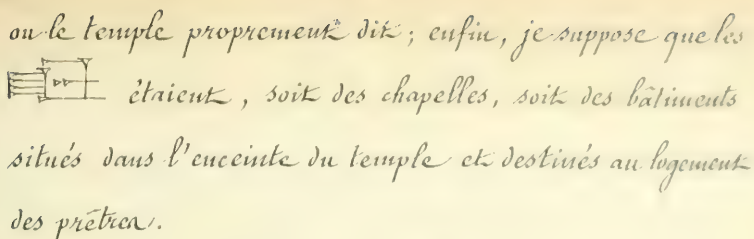 ou le temple proprement dit ; enfin, je suppose que les
étaient, soit des chapelles, soit des bâtiments
situés dans l'enceinte du temple et destinés au logement
des prêtres.